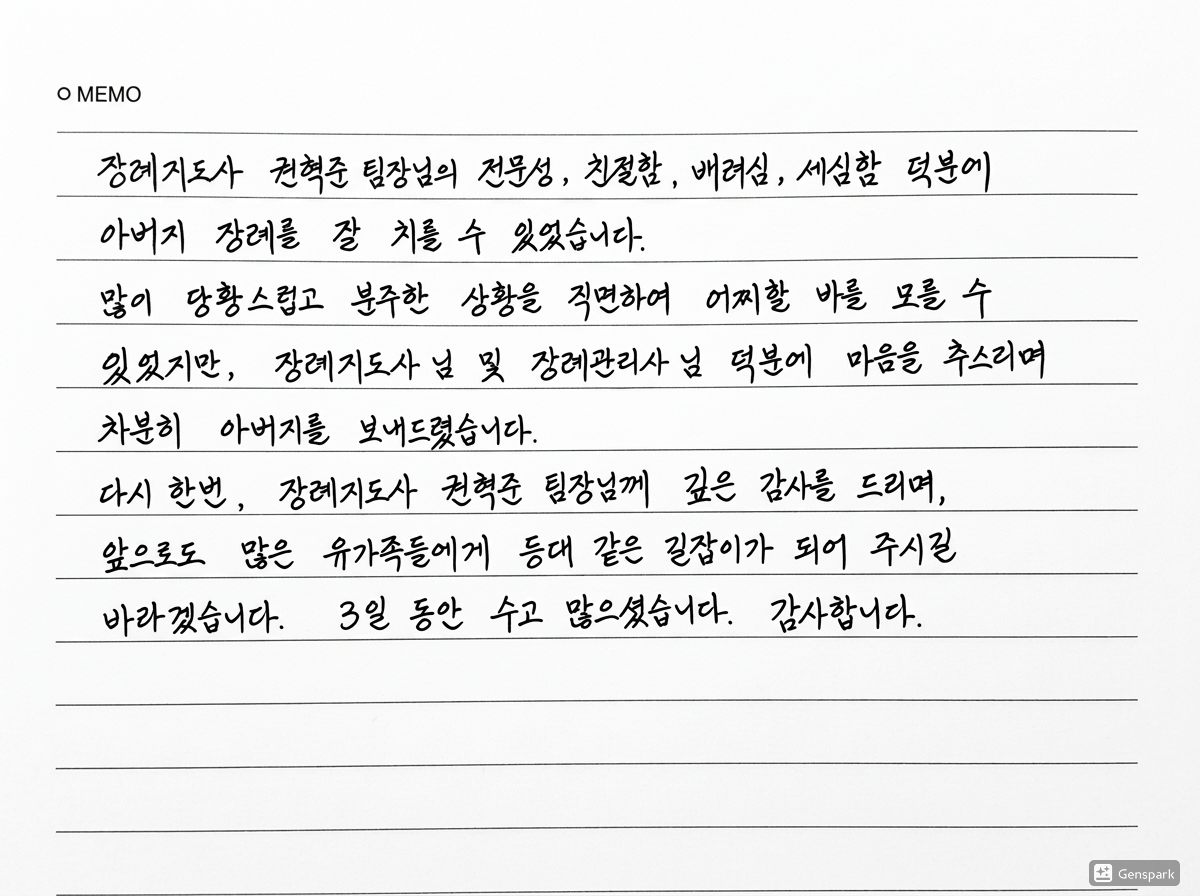 ○ MEMO
장례지도사 권혁준 팀장님의 전문성, 친절함, 배려심, 세심함 덕분에
아버지 장례를 잘 치를 수 있었습니다.
많이 당황스럽고 분주한 상황을 직면하여 어찌할 바를 모를 수
있었지만, 장례지도사님 및 장례관리사님 덕분에 마음을 추스리며
차분히 아버지를 보내드렸습니다.
다시 한번, 장례지도사 권혁준 팀장님께 깊은 감사를 드리며,
앞으로도 많은 유가족들에게 등대 같은 길잡이가 되어 주시길
바라겠습니다. 3일 동안 수고 많으셨습니다. 감사합니다.
Genspark